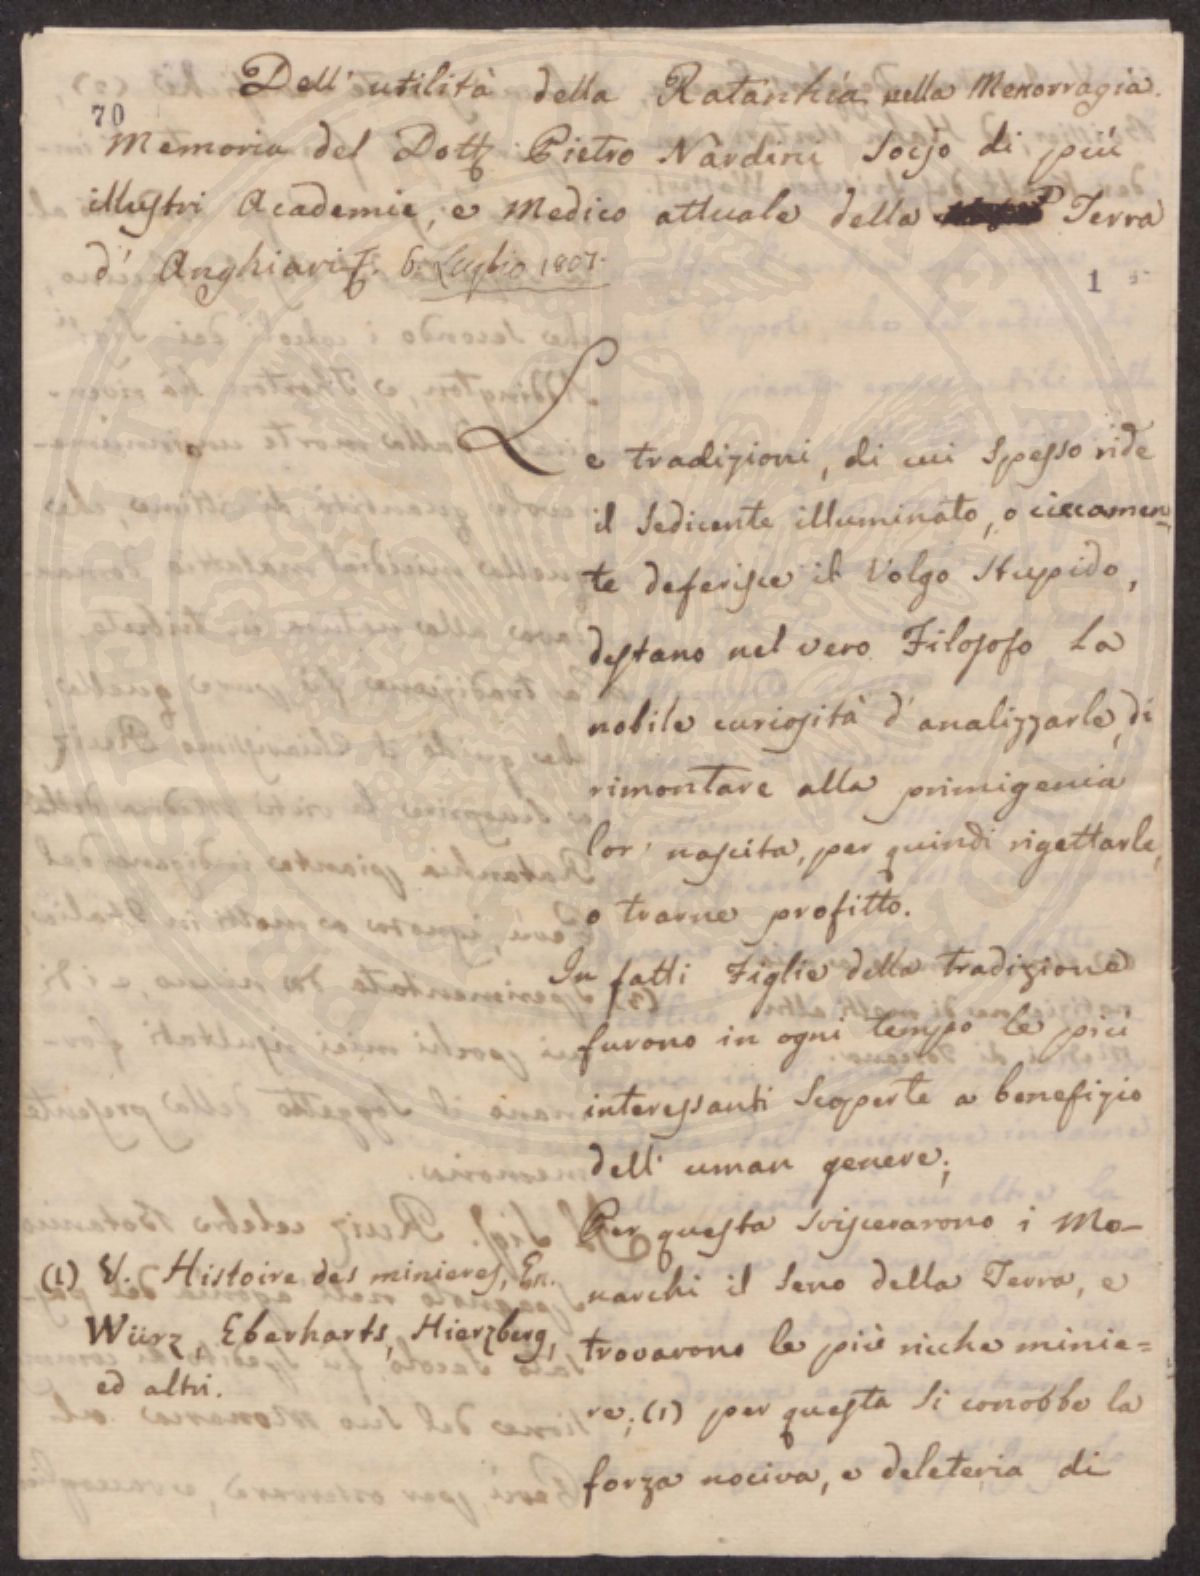 Dell' utilità della Ratanhia nella Menorragia.
70
Memoria del Dott. Pietro Nardini Socio di più
illustri Academie, e Medico attuale della Terra
d' Anghiari. 6. Luglio 1807.
1
Le tradizioni, di cui spesso ride
il sedicente illuminato, o ciecamen-
te deferisce il Volgo stupido,
destano nel vero Filosofo la
nobile curiosità d' analizzarle, di
rimontare alla primigenia
lor' nascita, per quindi rigettarle,
o trarne profitto.
In fatti Figlie della tradizione
furono in ogni tempo le più
interessanti scoperte a benefizio
dell' uman genere;
Per questa sviscerarono i Mo-
narchi il seno della Terra, e
trovarono le più ricche minie=
re; (1) per questa si conobbe la
forza nociva, e deleteria di
(1) V. Histoire des minieres, En.
Würz, Eberharts, Hierzberg,
ed altri.